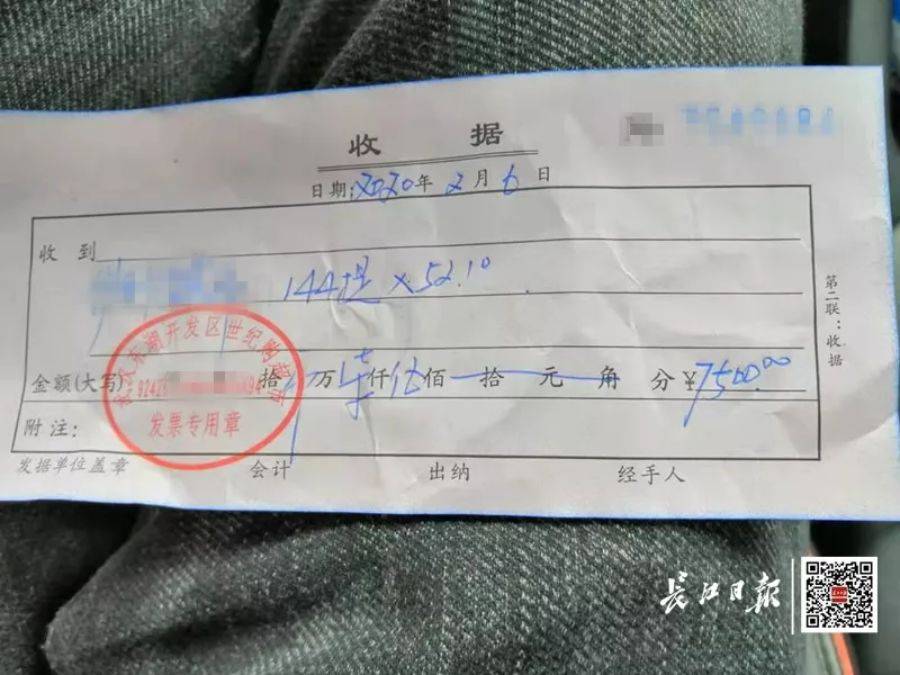 收 据
日期:2020年2月6日
收 到
144提×52.10
金额(大写) 拾 万 柒仟伍佰 拾 元 角 分¥7500.00
附 注:
发据单位盖章 会计 出纳 经手人
第二联:收据
武汉东湖开发区世纪购
发票专用章
长江日报